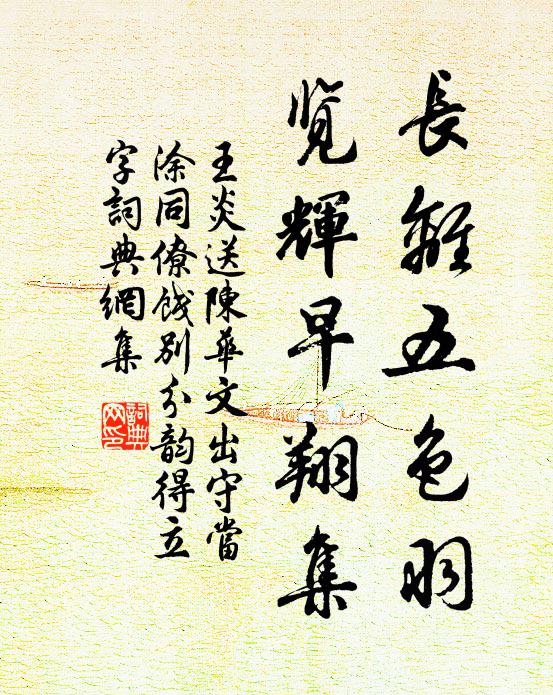 長離五色羽
览輝早翔集
王炎送陳華文出守當
涂同僚餞別分韵得立
字詞典網集
詞典
网印